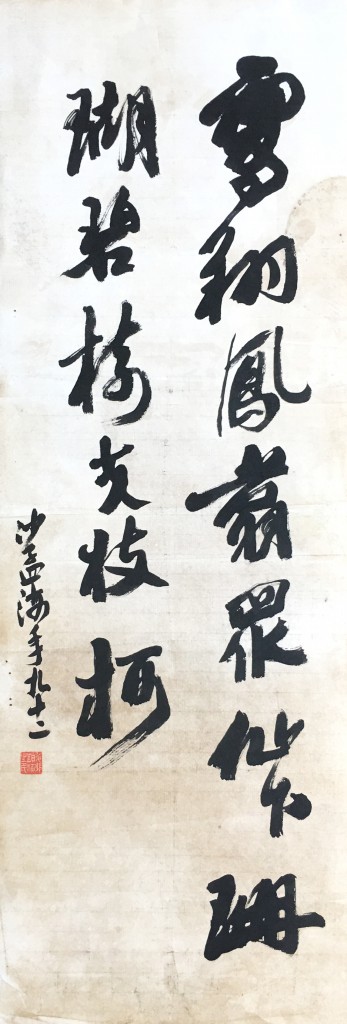 鸞翔鳳翥眾仙下珊
瑚碧樹交枝柯
沙孟海年九十二